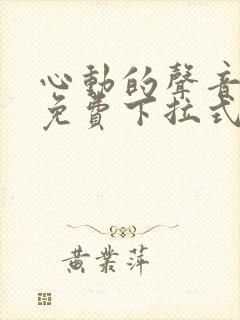 心動的聲音
免費下拉式
黃業萍